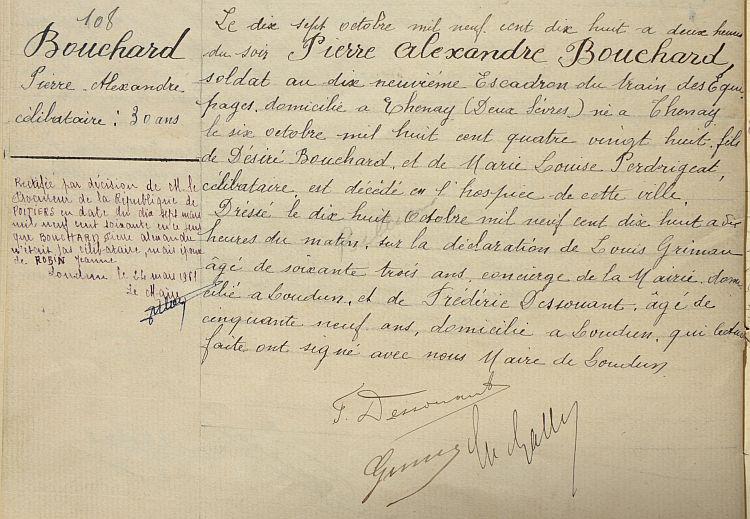 108
Bouchard
Pierre Alexandre
célibataire : 30 ans
Rectifié par décision de M. le
Procureur de la République de
POITIERS en date du dix sept mars
mil neuf cent soixante en ce sens
que BOUCHARD Pierre
n'était pas célibataire, mais époux
de ROBIN Jeanne
Loudun le 24 mars 1961
Le Maire
Le dix sept octobre mil neuf cent dix huit a deux heures
du soir Pierre Alexandre Bouchard,
soldat au dix neuvième Escadron du train des Equi-
pages, domicilié a Thenay (Deux Sèvres) né a Thenay
le six octobre mil huit cent quatre vingt huit, fils
de Désiré Bouchard, et de Marie Louise Perdrigeat,
célibataire, est décédé en l'hospice de cette ville.
Dressé le dix huit Octobre mil neuf cent dix huit a dix
heures du matin, sur la déclaration de Louis Grimau
âgé de soixante trois ans, concierge de la Mairie, domi-
cilié a Loudun, et de Frédéric Dessouant, âgé de
cinquante neuf ans, domicilié a Loudun, qui lecture
faite ont signé avec nous Maire de Loudun
F. Dessouant